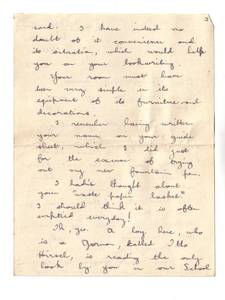 3
said. I have indeed no
doubt of it convenience and
its situation, which would help
you on your bookwriting.
Your room must have
been very simple in its
equipment of its furniture and
decorations.
I remember having written
your name on your guide
sheet, which I did just
for the excuse of trying
out my new fountain pen.
I hadn't thought about
your "waste paper basket"
I should think it is often
emptied everyday!
Oh, yes. A boy here, who
is a German, called
Hirsch, is reading the only
book by you in our School